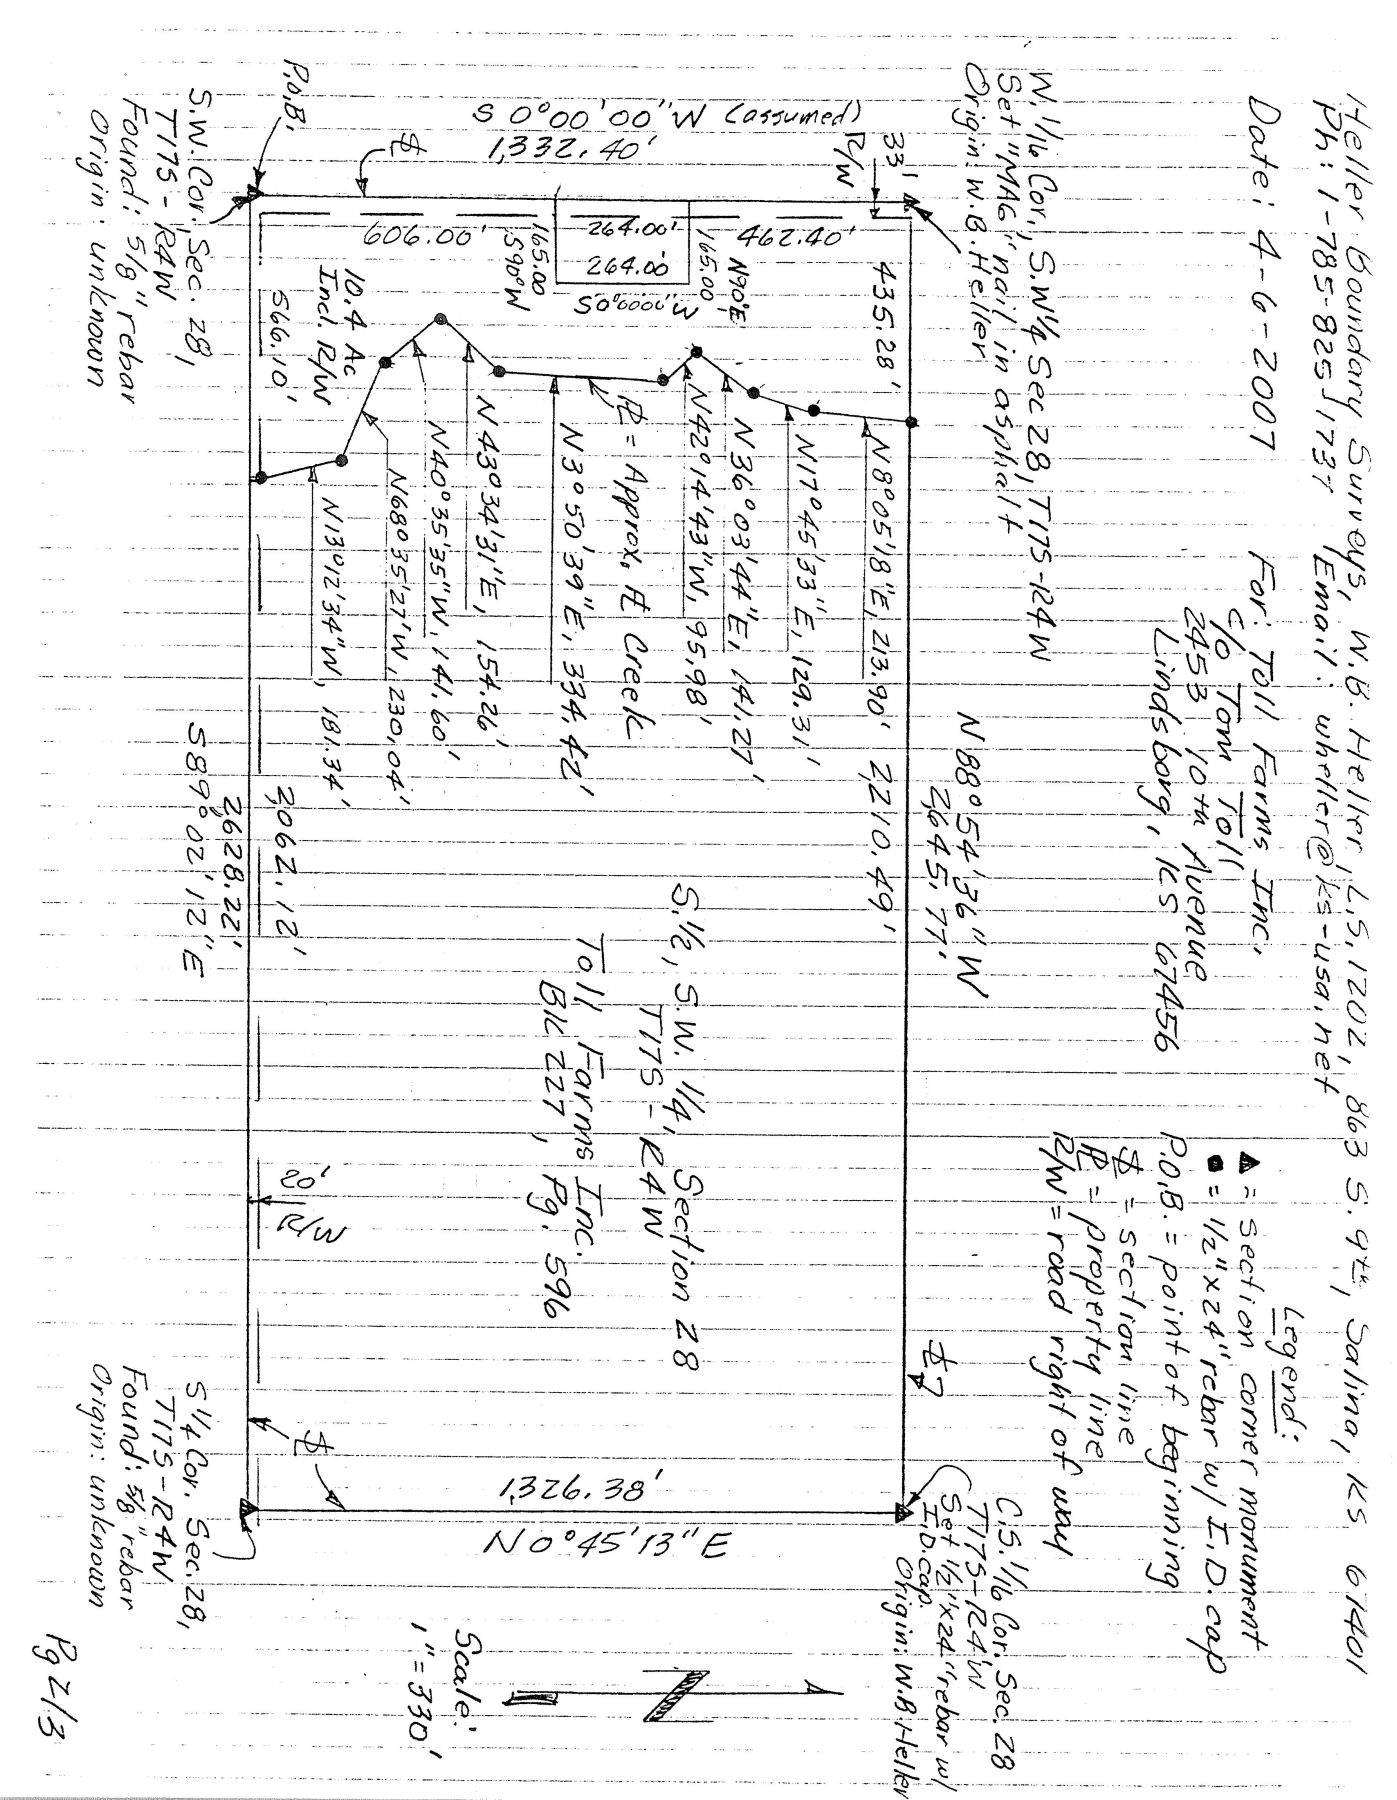 Heller Boundary Surveys, W.B. Heller, L.S. 1202, 863 S. 9th, Salina, KS 67401
Ph: 1-785-825-1731 Email: wheller@ks-usa.net
Date: 4-6-2007
For: Toll Farms Inc.
c/o Tom Toll
2453 10th Avenue
Lindsborg, KS 67456
Legend:
▲ = Section corner monument
● = 1/2" x 24" rebar w/ I.D. cap
P.O.B. = point of beginning
= section line
= property line
R/W = road right of way
W. 1/16 Cor., S.W. 1/4 Sec 28, T17S-R4W
Set "MAG" nail in asphalt
Origin: W.B. Heller
N 88° 54' 36" W
2,645.77'
C.S. 1/16 Cor. Sec. 28
T17S-R4W
Set 1/2" x 24" rebar w/
I.D. cap
Origin: W.B. Heller
33'
R/W
435.28'
2,210.49'
S 0° 00' 00" W (assumed)
1,332.40'
606.00'
264.00'
462.40'
165.00
S 90° W
264.00
S 0° 00' 00" W
165.00
N 90° E
N 8° 05' 18" E, 213.90'
N 17° 45' 33" E, 129.31'
N 36° 03' 44" E, 141.27'
N 42° 14' 43" W, 95.98'
= Approx. ₵ Creek
N 3° 50' 39" E, 334.42'
N 43° 34' 31" E, 154.26'
N 40° 35' 35" W, 141.60'
N 68° 35' 27" W, 230.04'
N 13° 12' 34" W, 181.34'
10.4 Ac
Incl. R/W
566.10'
2,062.12'
S. 1/2, S.W. 1/4, Section 28
T17S-R4W
Toll Farms Inc.
BK 227, Pg. 596
20'
R/W
1,326.38'
N 0° 45' 13" E
2,628.22'
S 89° 02' 12" E
P.O.B.
S.W. Cor. Sec. 28,
T17S-R4W
Found: 5/8" rebar
Origin: unknown
S 1/4 Cor. Sec. 28,
T17S-R4W
Found: 5/8" rebar
Origin: unknown
Scale:
1" = 330'
N
Pg 2/3